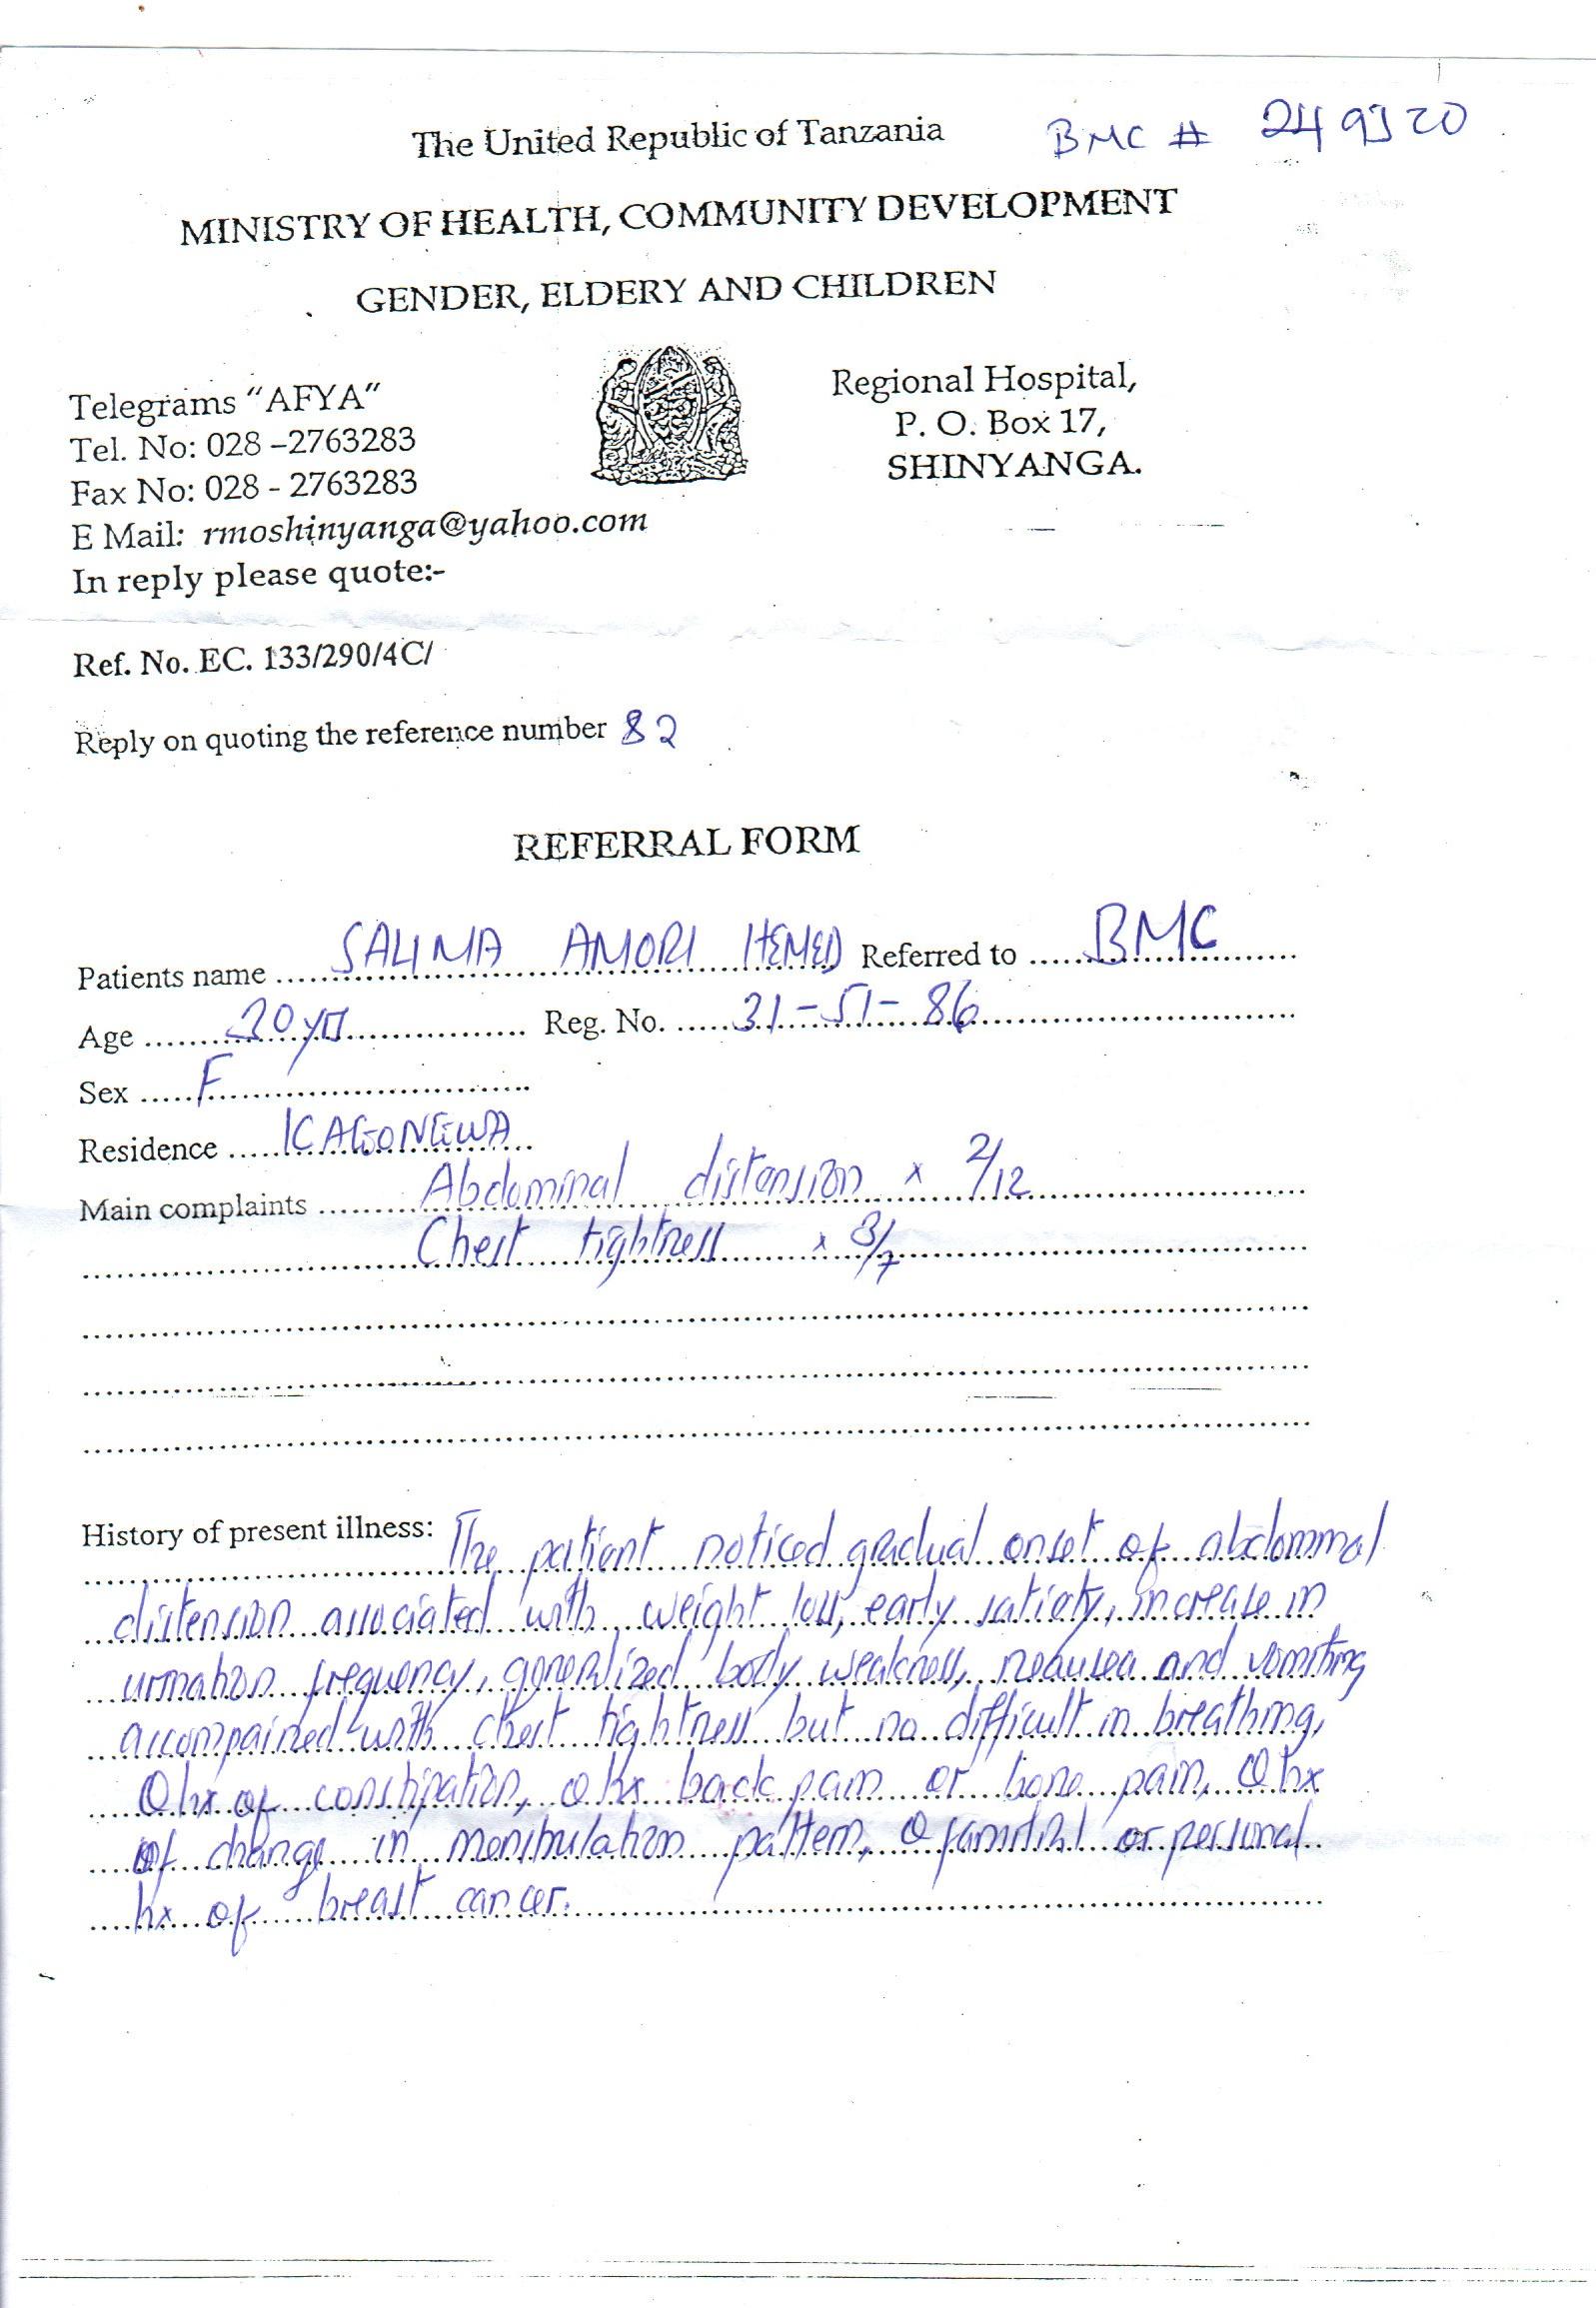 BMC # 249520
The United Republic of Tanzania
MINISTRY OF HEALTH, COMMUNITY DEVELOPMENT
GENDER, ELDERY AND CHILDREN
Telegrams "AFYA"
Tel. No: 028 –2763283
Fax No: 028 - 2763283
E Mail: rmoshinyanga@yahoo.com
In reply please quote:-
Regional Hospital,
P. O. Box 17,
SHINYANGA.
Ref. No. EC. 133/290/4C/
Reply on quoting the reference number 82
REFERRAL FORM
Patients name SALIMA AMORI HEMED Referred to BMC
Age 30 yrs Reg. No. 31-51-86
Sex F
Residence KAGONGWA
Main complaints Abdominal distension x 2/12
Chest tightness x 3/7
History of present illness: The patient noticed gradual onset of abdominal
distension associated with weight loss, early satiety, increase in
urination frequency, generalized body weakness, neausea and vomiting
accompained with chest tightness but no difficult in breathing,
0 hx of constipation, 0 hx back pain or bone pain, 0 hx
of change in menstrulation pattern, 0 familial or personal
hx of breast cancer.